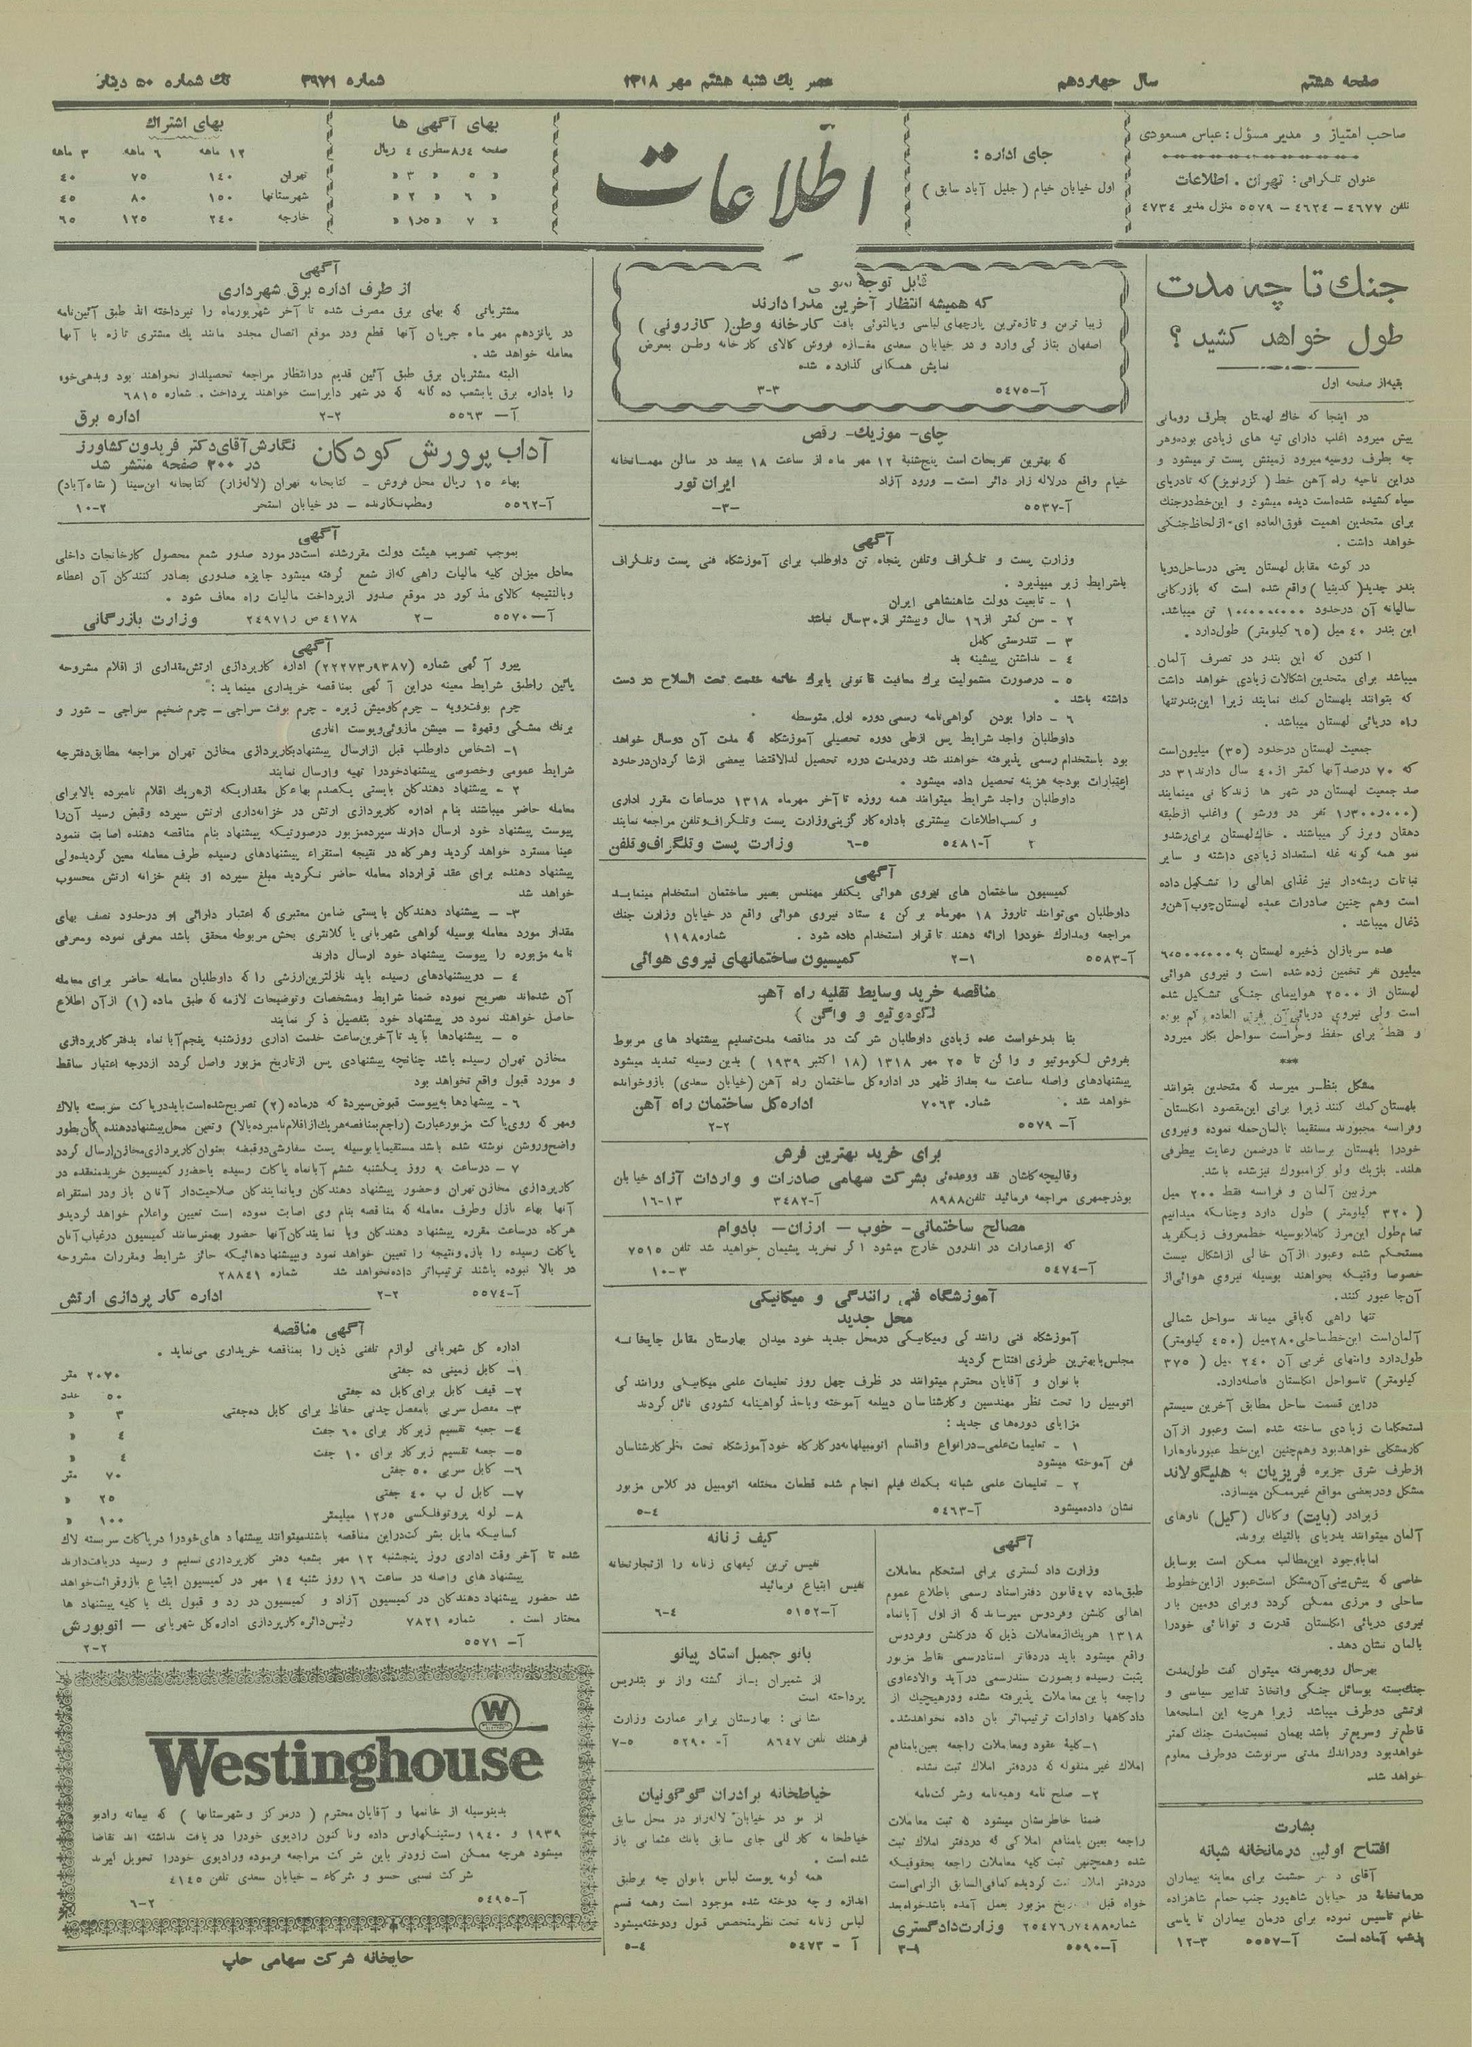 صفحه هشتم
سال چهاردهم
عصر یك شنبه هشتم مهر ۱۳۱۸
شماره ۳۹۷۱
تك شماره ۵۰ دینار
صاحب امتیاز و مدیر مسؤل: عباس مسعودی
عنوان تلگرافی: تهران. اطلاعات
تلفن ۴۶۷۷ – ۴۶۲۴ – ۵۵۷۹ منزل مدیر ۴۷۳۴
جای اداره:
اول خیابان خیام ( جلیل آباد سابق )
اطلاعات
بهای آگهی ها
صفحه ۴و۸ سطری ۴ ریال
» ۵ » ۳ »
» ۶ » ۲ »
بهای اشتراك
۱۲ ماهه ۶ ماهه ۳ ماهه
تهران ۱۴۰ ۷۵ ۴۰
شهرستانها ۱۵۰ ۸۰ ۴۵
خارجه ۲۴۰ ۱۲۵ ۶۵
جنك تا چه مدت
طول خواهد كشید؟
بقیه از صفحه اول
در اینجا كه خاك لهستان بطرف رومانی
پیش میرود اغلب دارای تپه های زیادی بوده وهر
چه بطرف روسیه میرود زمینش پست تر میشود و
سیاه كشیده شده است دیده میشود و این خط در جنك
برای متحدین اهمیت فوق العاده ای از لحاظ جنگی
خواهد داشت .
در گوشه مقابل لهستان یعنی در ساحل دریا
این بندر ۴۰ میل (۶۵ كیلومتر) طول دارد .
اكنون كه این بندر در تصرف آلمان
میباشد برای متحدین اشكالات زیادی خواهد داشت
كه بتوانند بلهستان كمك نمایند زیرا این بندر تنها
راه دریائی لهستان میباشد .
جمعیت لهستان در حدود (۳۵) میلیون است
كه ۷۰ درصد آنها كمتر از ۴۰ سال دارند ۳۱ در
صد جمعیت لهستان در شهر ها زندگانی مینمایند
دهقان و برزگر میباشند . خاك لهستان برای رشد و
نمو همه گونه غله استعداد زیادی داشته و سایر
نباتات ریشه دار نیز غذای اهالی را تشكیل داده
است وهم چنین صادرات عمده لهستان چوب آهن و
ذغال میباشد .
میلیون نفر تخمین زده شده است و نیروی هوائی
لهستان از ۲۵۰۰ هواپیمای جنگی تشكیل شده
و فقط برای حفظ وحراست سواحل بكار میرود
***
مشكل بنظر میرسد كه متحدین بتوانند
بلهستان كمك كنند زیرا برای این مقصود انگلستان
وفرانسه مجبورند مستقیما بآلمان حمله نموده و نیروی
خودرا بلهستان برسانند تا در ضمن رعایت بیطرفی
هلند. بلژیك ولو كزامبورك نیز شده باشد.
مرز بین آلمان و فرانسه فقط ۲۰۰ میل
( ۳۲۰ كیلومتر ) طول دارد وچنانكه میدانیم
تمام طول این مرز كاملا بوسیله خط معروف زیگفرید
مستحكم شده وعبور از آن خالی از اشكال نیست
خصوصا وقتیكه بخواهند بوسیله نیروی هوائی از
آن جا عبور كنند.
تنها راهی كه باقی میماند سواحل شمالی
آلمان است این خط ساحلی ۲۸۰ میل (۴۵۰ كیلومتر)
طول دارد وانتهای غربی آن ۲۴۰ میل ( ۳۷۵
كیلومتر) تا سواحل انگلستان فاصله دارد.
در این قسمت ساحل مطابق آخرین سیستم
استحكامات زیادی ساخته شده است وعبور از آن
كار مشكلی خواهد بود وهم چنین این خط عبور ناوها را
از طرف شرق جزیره فریزیان به هلیگولاند
مشكل ودر بعضی مواقع غیر ممكن میسازد.
زیرا در (بایت) و كانال (كیل) ناوهای
آلمان میتوانند بدریای بالتیك بروند.
اما باوجود این مطالب ممكن است بوسایل
خاصی كه پیش بینی آن مشكل است عبور از این خطوط
ساحلی و مرزی ممكن گردد وبرای دومین بار
نیروی دریائی انگلستان قدرت و توانائی خودرا
بآلمان نشان دهد .
بهرحال رویهمرفته میتوان گفت طول مدت
جنك بسته بوسائل جنگی واتخاذ تدابیر سیاسی و
ارتشی دو طرف میباشد زیرا هرچه این اسلحه ها
قاطع تر وسریع تر باشد بهمان نسبت مدت جنك كمتر
خواهد بود و در اندك مدتی سرنوشت دو طرف معلوم
خواهد شد.
بشارت
افتتاح اولین درمانخانه شبانه
درمانخانهٔ در خیابان شاهپور جنب حمام شاهزاده
خانم تاسیس نموده برای درمان بیماران تا پاسی
از شب آماده است آ–۵۵۵۷ ۳–۱۲
قابل توجه
كه همیشه انتظار آخرین مد را دارند
زیبا ترین و تازه ترین پارچهای لباسی و پالتوئی بافت كارخانه وطن ( كازرونی )
اصفهان بتازگی وارد و در خیابان سعدی مغازه فروش كالای كارخانه وطن بمعرض
نمایش همگانی گذارده شده
آ–۵۴۷۵ ۳–۳
چای – موزیك – رقص
كه بهترین تفریحات است پنج شنبه ۱۲ مهر ماه از ساعت ۱۸ ببعد در سالن مهمانخانه
خیام واقع در لاله زار دائر است – ورود آزاد ایران تور
آ–۵۵۳۷ –۳–
آگهی
وزارت پست و تلگراف وتلفن پنجاه تن داوطلب برای آموزشگاه فنی پست وتلگراف
باشرایط زیر میپذیرد .
۱ – تابعیت دولت شاهنشاهی ایران
۲ – سن كمتر از ۱۶ سال وبیشتر از ۳۰ سال نباشد
۳ – تندرستی كامل
۴ – نداشتن پیشینه بد
۵ – در صورت مشمولیت برك معافیت قانونی یا برك خاتمه خدمت تحت السلاح در دست
داشته باشد .
۶ – دارا بودن گواهی نامه رسمی دوره اول متوسطه
داوطلبان واجد شرایط پس از طی دوره تحصیلی آموزشگاه كه مدت آن دو سال خواهد
بود باستخدام رسمی پذیرفته خواهند شد ودر مدت دوره تحصیل لدالاقتضا ببعضی از شاگردان در حدود
اعتبارات بودجه هزینه تحصیل داده میشود .
داوطلبان واجد شرایط میتوانند همه روزه تا آخر مهرماه ۱۳۱۸ در ساعات مقرر اداری
و كسب اطلاعات بیشتری باداره كارگزینی وزارت پست وتلگراف وتلفن مراجعه نمایند
۲ آ–۵۴۸۱ ۵–۶ وزارت پست وتلگراف وتلفن
آگهی
كمیسیون ساختمان های نیروی هوائی یكنفر مهندس بصیر ساختمان استخدام مینماید
داوطلبان می توانند تا روز ۱۸ مهرماه بركن ۴ ستاد نیروی هوائی واقع در خیابان وزارت جنك
مراجعه ومدارك خودرا ارائه دهند تا قرار استخدام داده شود . شماره ۱۱۹۸
آ–۵۵۸۳ ۱–۲ كمیسیون ساختمانهای نیروی هوائی
مناقصه خرید وسایط نقلیه راه آهن
( لكوموتیو و واگن )
بنا بدرخواست عده زیادی داوطلبان شركت در مناقصه مدت تسلیم پیشنهاد های مربوط
بفروش لكوموتیو و واگن تا ۲۵ مهر ۱۳۱۸ (۱۸ اكتبر ۱۹۳۹) بدین وسیله تمدید میشود
پیشنهادهای واصله ساعت سه بعد از ظهر در اداره كل ساختمان راه آهن (خیابان سعدی) باز و خوانده
خواهد شد . شماره ۷۰۶۳ اداره كل ساختمان راه آهن
آ–۵۵۷۹ ۲–۲
برای خرید بهترین فرش
وقالیچه كاشان نقد ووعده ئی بشركت سهامی صادرات و واردات آزاد خیابان
بوذرجمهری مراجعه فرمائید تلفن ۸۹۸۸ آ–۳۴۸۲ ۱۳–۱۶
مصالح ساختمانی – خوب – ارزان – بادوام
كه از عمارات در اندرون خارج میشود اگر نخرید پشیمان خواهید شد تلفن ۷۵۱۵
آ–۵۴۷۴ ۳–۱۰
آموزشگاه فنی رانندگی و میكانیكی
محل جدید
آموزشگاه فنی رانندگی ومیكانیكی در محل جدید خود میدان بهارستان مقابل چاپخانه
مجلس با بهترین طرزی افتتاح گردید
بانوان و آقایان محترم میتوانند در ظرف چهل روز تعلیمات علمی میكانیكی ورانندگی
اتومبیل را تحت نظر مهندسین وكارشناسان دیپلمه آموخته وباخذ گواهینامه كشوری نائل گردند
مزایای دوره های جدید :
۱ – تعلیمات علمی – در انواع واقسام اتومبیلها به در كارگاه خود آموزشگاه تحت نظر كارشناسان
فن آموخته میشود
۲ – تعلیمات علمی شبانه بكمك فیلم انجام شده قطعات مختلفه اتومبیل در كلاس مزبور
نشان داده میشود آ–۵۴۶۳ ۴–۵
آگهی
وزارت دادگستری برای استحكام معاملات
طبق ماده ۴۷ قانون دفتر اسناد رسمی باطلاع عموم
اهالی گلشن وفردوس میرساند كه از اول آبانماه
۱۳۱۸ هریك از معاملات ذیل كه در گلشن وفردوس
واقع میشود باید در دفاتر اسناد رسمی نقاط مزبور
بثبت رسیده وبصورت سند رسمی در آید والا دعاوی
راجعه باین معاملات پذیرفته نشده ودر هیچیك از
دادگاهها وادارات ترتیب اثر بآن داده نخواهد شد.
۱–كلیهٔ عقود ومعاملات راجعه بعین یا منافع
املاك غیر منقوله كه در دفتر املاك ثبت نشده
۲– صلح نامه وهبه نامه وشركت نامه
ضمنا خاطر نشان میشود كه ثبت معاملات
راجعه بعین یا منافع املاكی كه در دفتر املاك ثبت
شده وهمچنین ثبت كلیه معاملات راجعه بحقوقیكه
در دفتر املاك ثبت گردیده كمافی السابق الزامی است
شماره ۷۴۸۸۰ر۲۵۴۷۶ وزارت دادگستری
آ–۵۵۹۰
كیف زنانه
نفیس ترین كیفهای زنانه را از تجارتخانه
نفیس ابتیاع فرمائید
آ–۵۱۵۲ ۴–۶
بانو جمبل استاد پیانو
از شمیران باز گشته واز نو بتدریس
پرداخته است
نشانی: بهارستان برابر عمارت وزارت
فرهنك تلفن ۸۶۴۷ آ– ۵۲۹۰ ۵–۷
خیاطخانه برادران گوگونیان
از نو در خیابان لاله زار در محل سابق
خیاطخانه كارللی جای سابق بانك عثمانی باز
شده است .
همه گونه پوست لباس بانوان چه بر طبق
اندازه و چه دوخته شده موجود است وهمه قسم
لباس زنانه تحت نظر متخصص قبول ودوخته میشود
آ – ۵۴۷۳ ۴–۵
آگهی
از طرف اداره برق شهرداری
مشتریانی كه بهای برق مصرف شده تا آخر شهریورماه را نپرداخته اند طبق آئین نامه
در پانزدهم مهر ماه جریان آنها قطع ودر موقع اتصال مجدد مانند یك مشتری تازه با آنها
معامله خواهد شد .
البته مشتریان برق طبق آئین قدیم در انتظار مراجعه تحصیلدار نخواهند بود وبدهی خود
را باداره برق یا بشعب ده گانه كه در شهر دایر است خواهند پرداخت . شماره ۶۸۱۵
آ– ۵۵۶۳ ۲–۲ اداره برق
آداب پرورش كودكان
نگارش آقای دكتر فریدون كشاورز
در ۳۰۰ صفحه منتشر شد
بهاء ۱۵ ریال محل فروش – كتابخانه تهران (لاله زار) كتابخانه ابن سینا (شاه آباد)
ومطب نگارنده – در خیابان استخر
آ–۵۵۶۲ ۲–۱۰
آگهی
بموجب تصویب هیئت دولت مقرر شده است در مورد صدور شمع محصول كارخانجات داخلی
معادل میزان كلیه مالیات راهی كه از شمع گرفته میشود جایزه صدوری بصادر كنندگان آن اعطاء
وبالنتیجه كالای مذكور در موقع صدور از پرداخت مالیات راه معاف شود .
آ–۵۵۷۰ ۲– ۴۱۷۸ ص ر۲۴۹۷۱ وزارت بازرگانی
آگهی
پیرو آگهی شماره (۹۳۸۷ر۲۲۲۷۳) اداره كارپردازی ارتش مقداری از اقلام مشروحه
پائین را طبق شرایط معینه در این آگهی بمناقصه خریداری مینماید :
چرم یوفت رویه – چرم گاومیش زیره – چرم یوفت سراجی – چرم ضخیم سراجی – شور و
برنك مشكی وقهوهٔ – میشن مازوئی و پوست اناری
۱– اشخاص داوطلب قبل از ارسال پیشنهاد بكارپردازی مخازن تهران مراجعه مطابق دفترچه
شرایط عمومی وخصوصی پیشنهاد خودرا تهیه وارسال نمایند
۲ – پیشنهاد دهندگان بایستی یكصدم بهاء كل مقداریكه از هریك اقلام نامبرده بالا برای
معامله حاضر میباشند بنام اداره كارپردازی ارتش در خزانه داری ارتش سپرده وقبض رسید آنرا
پیوست پیشنهاد خود ارسال دارند سپرده مزبور در صورتیكه پیشنهاد بنام مناقصه دهنده اصابت ننمود
عینا مسترد خواهد گردید وهرگاه در نتیجه استقراء پیشنهادهای رسیده طرف معامله معین گردیده ولی
پیشنهاد دهنده برای عقد قرارداد معامله حاضر نگردید مبلغ سپرده او بنفع خزانه ارتش محسوب
خواهد شد
۳– – پیشنهاد دهندگان بایستی ضامن معتبری كه اعتبار دارائی او در حدود نصف بهای
مقدار مورد معامله بوسیله گواهی شهربانی یا كلانتری بخش مربوطه محقق باشد معرفی نموده ومعرفی
نامه مزبوره را پیوست پیشنهاد خود ارسال دارند
۴ – در پیشنهادهای رسیده باید نازلترین ارزشی را كه داوطلبان معامله حاضر برای معامله
آن شده اند تصریح نموده ضمنا شرایط ومشخصات وتوضیحات لازمه كه طبق ماده (۱) از آن اطلاع
حاصل خواهند نمود در پیشنهاد خود بتفصیل ذكر نمایند
۵ – پیشنهادها باید تا آخرین ساعت خدمت اداری روز شنبه پنجم آبانماه بدفتر كارپردازی
مخازن تهران رسیده باشد چنانچه پیشنهادی پس از تاریخ مزبور واصل گردد از درجه اعتبار ساقط
و مورد قبول واقع نخواهد بود
۶– پیشنهادها به پیوست قبوض سپردهٔ كه در ماده (۲) تصریح شده است باید در پاكت سربسته بالاك
ومهر كه روی پاكت مزبور عبارت (راجع بمناقصه هریك از اقلام نامبرده بالا) وتعیین محل پیشنهاد دهندگان بطور
واضح وروشن نوشته شده باشد مستقیما یا بوسیله پست سفارشی دو قبضه بعنوان كارپردازی مخازن ارسال گردد
۷ – در ساعت ۹ روز یكشنبه ششم آبانماه پاكات رسیده با حضور كمیسیون خرید منعقده در
كارپردازی مخازن تهران وحضور پیشنهاد دهندگان ویا نمایندگان صلاحیت دار آنان باز ودر استقراء
آنها بهاء نازل وطرف معامله كه مناقصه بنام وی اصابت نموده است تعیین واعلام خواهد گردید و
هرگاه در ساعت مقرره پیشنهاد دهندگان ویا نمایندگان آنها حضور بهم نرسانند كمیسیون در غیاب آنان
پاكات رسیده را باز، ونتیجه را تعیین خواهد نمود وبپیشنهادهائیكه حائز شرایط ومقررات مشروحه
در بالا نبوده باشند ترتیب اثر داده نخواهد شد شماره ۲۸۸۴۱
آ–۵۵۷۴ ۲–۲ اداره كارپردازی ارتش
آگهی مناقصه
اداره كل شهربانی لوازم تلفنی ذیل را بمناقصه خریداری می نماید .
۱– كابل زمینی ده جفتی ۲۰۷۰ متر
۲– قیف كابل برای كابل ده جفتی ۵۰ عدد
۳– مفصل سربی بامفصل چدنی حفاظ برای كابل ده جفتی ۳ »
۴– جعبه تقسیم زیر كار برای ۶۰ جفت ۴ »
۵– جعبه تقسیم زیر كار برای ۱۰ جفت ۴ »
۶– كابل سربی ۵۰ جفتی ۷۰ متر
۷– كابل ل ب ۴۰ جفتی ۲۵ »
۸– لوله پرونوفلكسی ۵ر۱۲ میلیمتر ۱۰۰ »
كسانیكه مایل بشركت در این مناقصه باشند میتوانند پیشنهاد های خودرا در پاكات سربسته لاك
شده تا آخر وقت اداری روز پنجشنبه ۱۲ مهر بشعبه دفتر كارپردازی تسلیم و رسید دریافت دارند
پیشنهاد های واصله در ساعت ۱۶ روز شنبه ۱۴ مهر در كمیسیون ابتیاع باز وقرائت خواهد
شد حضور پیشنهاد دهندگان در كمیسیون آزاد و كمیسیون در رد و قبول یك یا كلیه پیشنهاد ها
مختار است . شماره ۷۸۲۱ رئیس دائره كارپردازی اداره كل شهربانی – اتوبورش
آ– ۵۵۷۱ ۲–۲
W
Westinghouse
بدینوسیله از خانمها و آقایان محترم ( در مركز و شهرستانها ) كه بیعانه رادیو
۱۹۳۹ و ۱۹۴۰ وستینگهاوس داده وتاكنون رادیوی خودرا دریافت نداشته اند تقاضا
میشود هرچه ممكن است زودتر باین شركت مراجعه فرموده ورادیوی خودرا تحویل گیرند
شركت نسبی حسو و شركاء – خیابان سعدی تلفن ۴۱۴۵
آ–۵۴۹۵ ۲–۶
چاپخانه شركت سهامی چاپ